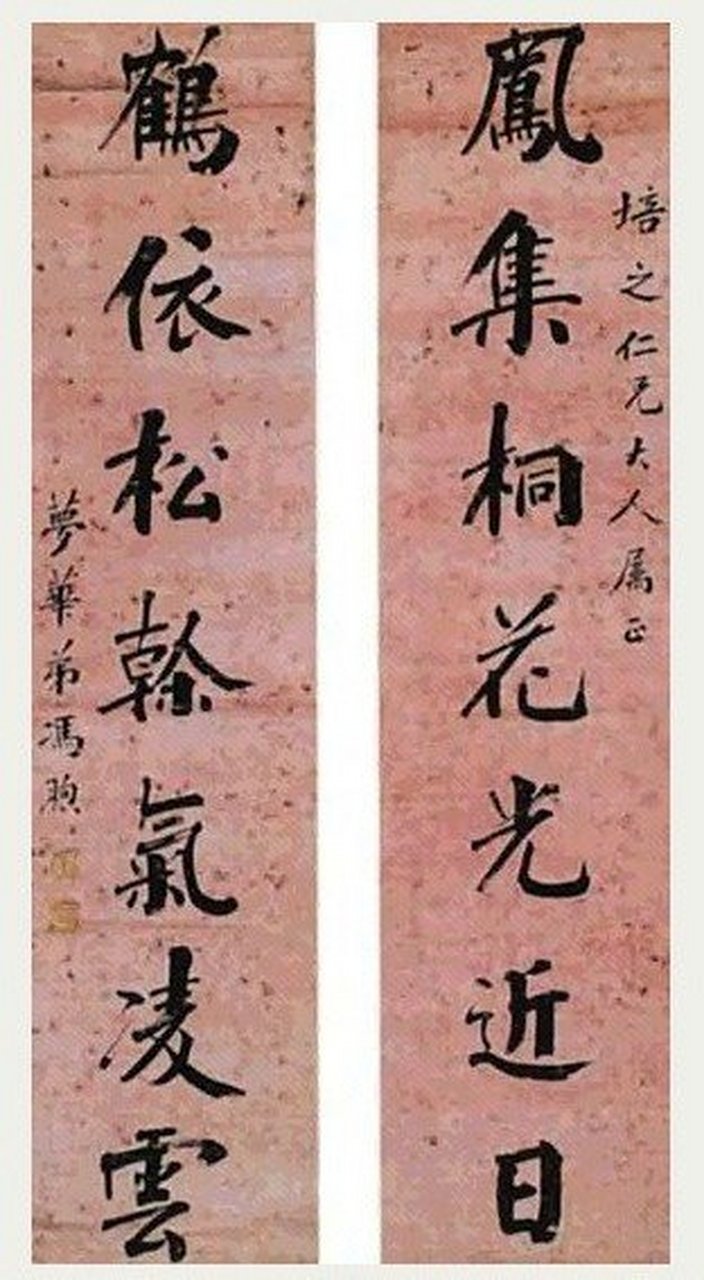 培之仁兄大人属正
鳳集桐花光近日
鶴依松榦氣凌雲
夢華弟馮煦